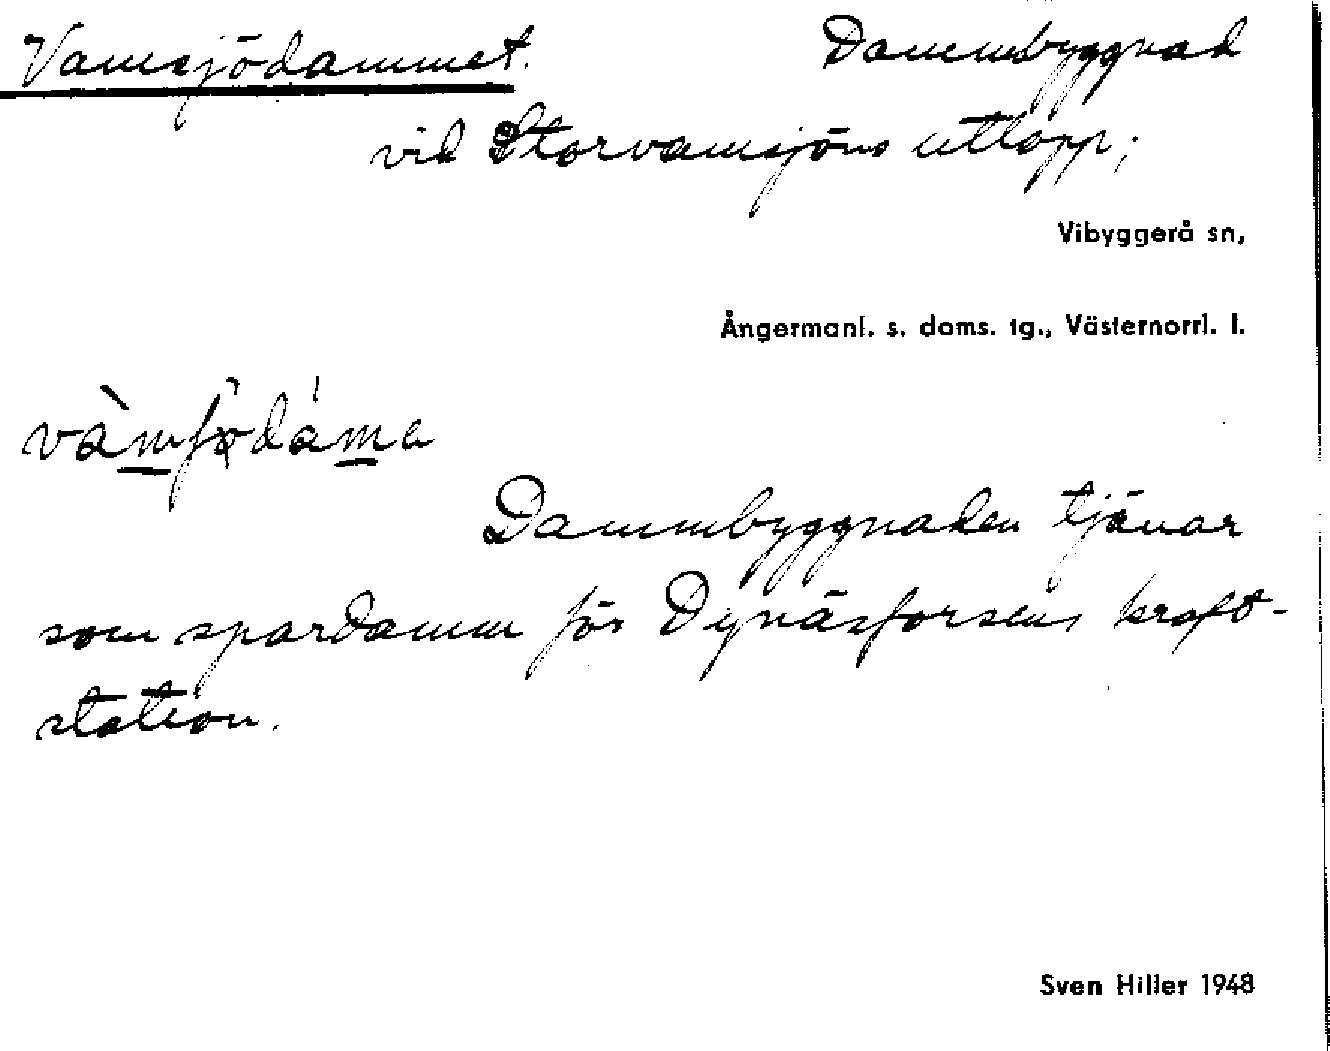 Vamsjödammet. Dammbyggnad
vid Storvamsjöns utlopp;
Vibyggerå sn,
Ångermanl. s. doms. tg., Västernorrl. l.
Dammbyggnaden tjänar
som spardamm för Dynäsforsens kraft-
station.
Sven Hiller 1948